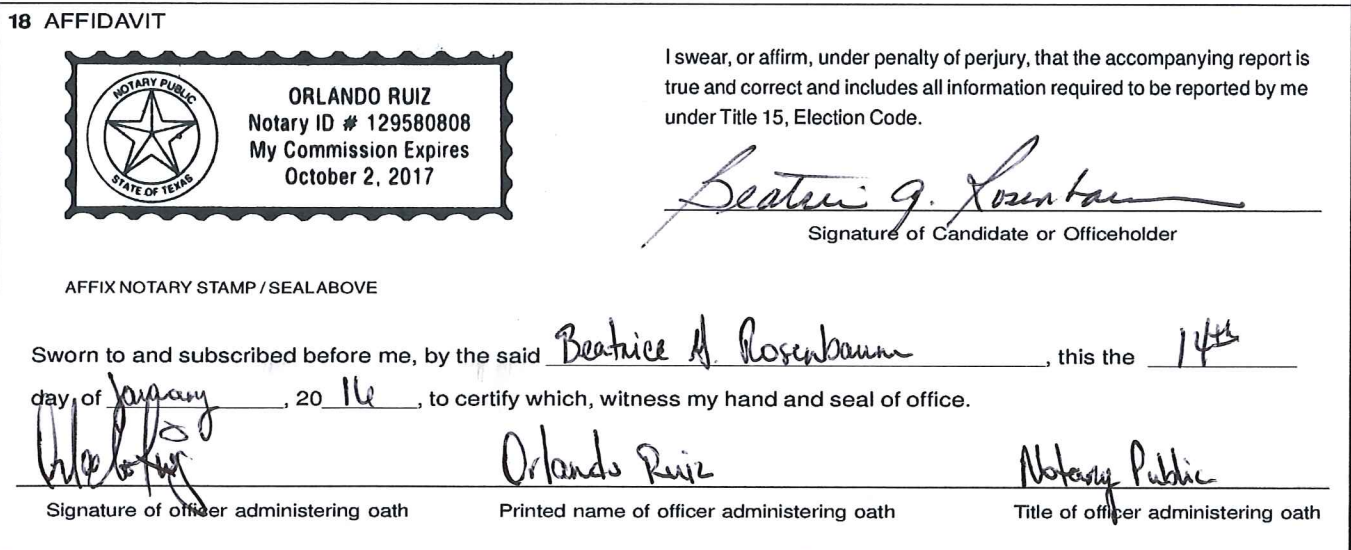 18 AFFIDAVIT
NOTARY PUBLIC
STATE OF TEXAS
ORLANDO RUIZ
Notary ID # 129580808
My Commission Expires
October 2, 2017
I swear, or affirm, under penalty of perjury, that the accompanying report is
true and correct and includes all information required to be reported by me
under Title 15, Election Code.
Signature of Candidate or Officeholder
AFFIX NOTARY STAMP / SEALABOVE
Sworn to and subscribed before me, by the said Beatrice A. Rosenbaum, this the 14th
day of January, 20 16, to certify which, witness my hand and seal of office.
Orlando Ruiz Notary Public
Signature of officer administering oath Printed name of officer administering oath Title of officer administering oath